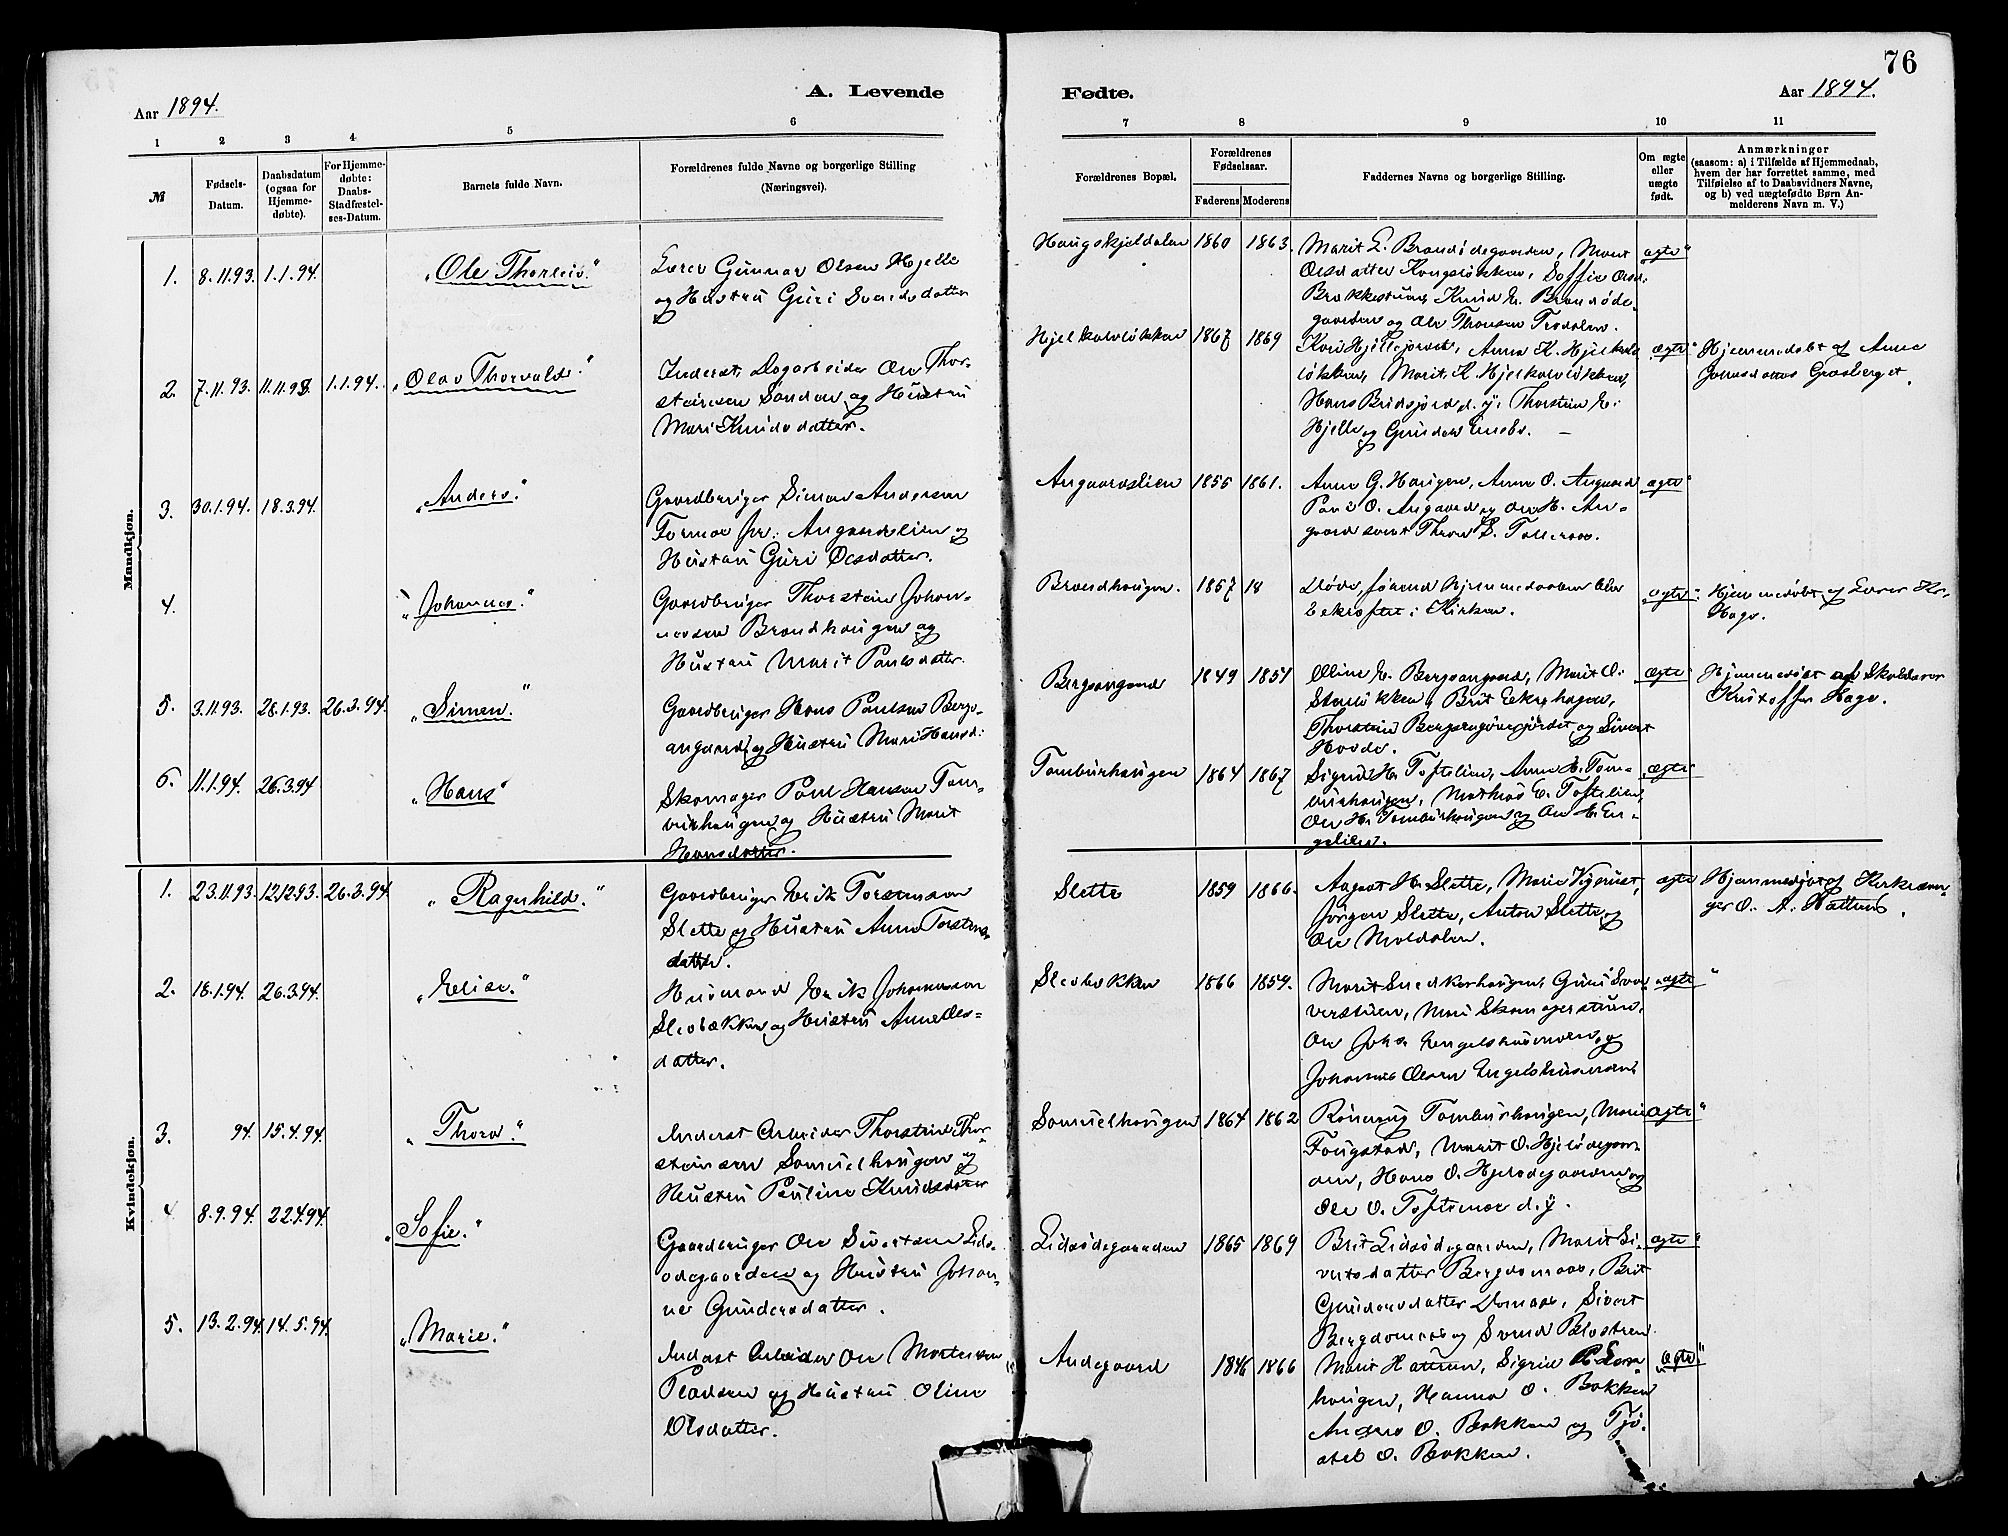 76
Aar 1894.
A. Levende
Fødte.
Aar 1894.
1 2 3 4 5 6 7 8 9 10 11
№
Fødsels-
Datum.
Daabsdatum
(ogsaa for
Hjemme-
døbte).
For Hjemme-
døbte:
Daabs-
Stadfæstel-
ses-Datum.
Barnets fulde Navn.
Forældrenes fulde Navne og borgerlige Stilling
(Næringsvei).
Forældrenes Bopæl.
Forældrenes
Fødselsaar.
Faderens Moderens
Faddernes Navne og borgerlige Stilling.
Om ægte
eller
uægte
født.
Anmærkninger
(saasom: a) i Tilfælde af Hjemmedaab,
hvem der har forrettet samme, med
Tilføielse af to Daabsvidners Navne,
og b) ved uægtefødte Børn An-
melderens Navn m. V.)
Mandkjøn.
1. 8.11.93. 1.1.94. „Ole Thorleiv."
Lærer Gunnar Olsen Hjelle
og Hustru Guri Svendsdatter
Haugskjeldalen 1860 1863.
Marit E. Brandødegaarden, Marit
Olsdatter Kongsløkken, Soffie Olsd.
Brækkestuen, Knud E. Brandøde-
gaarden og Ole Thorsen Trodalen.
ægte"
2. 7.11.93. 11.11.93. 1.1.94. „Olav Thorvald."
Inderst, Dagarbeider Ole Thor-
steinsen Søndan og Hustru
Mari Knudsdatter.
Hjelkolvløkken 1867 1869
Kari Hjellejordet, Anna K. Hjelkolv
løkken, Marit K. Hjelkolvløkken,
Hans Bridsjord d. y., Thorstein E.
Hjelle og Gunder Enebo. —
ægte"
Hjemmedøbt af Anne
Johnsdatter Graaberget.
3. 30.1.94. 18.3.94. „Anders."
Gaardbruger Simon Andersen
Formoe fr. Angaardslien og
Hustru Guri Olsdatter.
Angaardslien 1855 1861.
Anne G. Haugen, Anne O. Angaard
Paul O. Angaard og Ole H. An-
gaard samt Thron S. Tollersoe.
ægte"
4. „Johannes."
Gaardbruger Thorstein Johan-
nessen Brandhaugen og
Hustru Marit Paulsdatter.
Brandhaugen. 1857 18
Døde, førend Hjemmedaaben blev
bekræftet i Kirken.
„ægte"
Hjemmedøbt af Lærer Kr.
Hage.
5. 3.11.93. 28.1.93. 26.3.94. „Simen."
Gaardbruger Hans Paulsen Bergs-
angaard og Hustru Mari Hansd.
Bergsangaard 1849 1851
Oline E. Bergsangaard, Marit O.
Stenløkken, Brit Ekrehagen,
Thorstein Bergsengøverjordet og Sivert
Hovde.
ægte"
Hjemmedøbt af Skolelærer
Kristoffer Hage.
6. 11.1.94. 26.3.94 „Hans"
Skomager Paul Hansen Tom-
burhaugen og Hustru Marit
Hansdatter.
Tomburhaugen 1864 1867
Sigrid H. Toftelien, Anne H. Tom-
burhaugen, Mathias E. Toftelien,
Ole H. Tomburhaugen og Ole H. En-
gelien.
„ægte"
Kvindekjøn.
1. 23.11.93. 12.12.93. 26.3.94 „Ragnhild."
Gaardbruger Erik Torstensen
Slette og Hustru Anne Torstens-
datter.
Slette 1859 1866.
Aagaat H. Slette, Marie Vigerust,
Jørgen Slette, Anton Slette og
Ole Moldalen.
ægte
Hjemmedøbt af Kirkesan-
ger O. A. Hattrem.
2. 18.1.94. 26.3.94. „Elise."
Husmand Erik Johannesson
Slevbækken og Hustru Anne Ols-
datter.
Slevbekken 1866 1859.
Marit Snedkerhaugen, Guri Sva-
verstuen, Mari Skomagerstuen,
Ole Johs. Engelshusmoen og
Johannes Olsen Engelshusmoen
„ægte"
3. 94. 15.4.94. „Thora."
Inderst Arbeider Thorstein Thor-
steinsen Samuelhaugen og
Hustru Pauline Knudsdatter
Samuelhaugen 1864 1862
Rønnaug Tomburhaugen, Marie
Fougstad, Marit O. Hjelødegaar-
den, Hans O. Hjelødegaarden og
Ole O. Toftemoe d. y.
ægte"
4. 8.9.94. 22.4.94. „Sofie."
Gaardbruger Ole Sivertsen Lids-
ødegaarden og Hustru Johan-
ne Gundersdatter.
Lidsødegaarden 1865 1869
Brit Lidsødegaarden, Marit Si-
vertsdatter Bergdomaas, Brit
Gundersdatter Domaas, Sivert
Bergdomaas og Svend Bløstren.
ægte"
5. 13.2.94. 14.5.94. „Marie."
Inderst Arbeider Ole Mortensen
Pladsen og Hustru Oline
Olsdatter.
Andegaard 1846 1866
Marit Haugen, Sigrid
haugen, Hanna O. Bakken
Anders O. Bakken og Tjø-
stel O. Bakken.
„ægte"